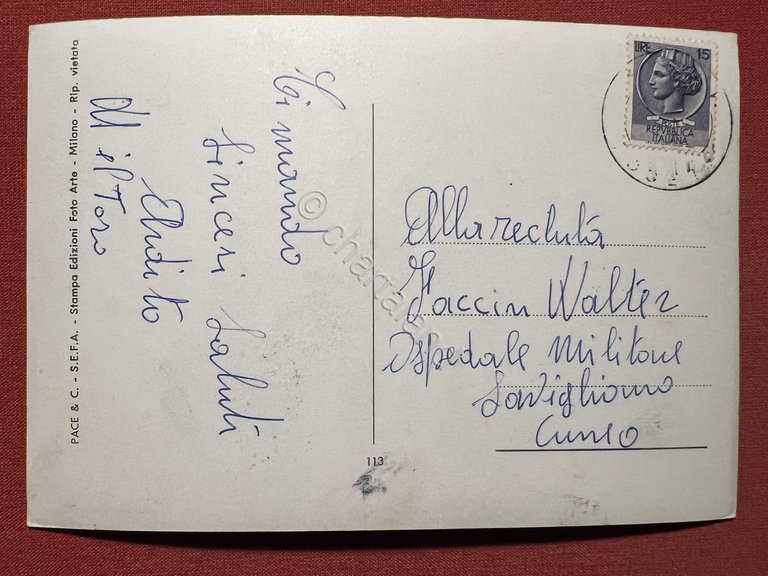 LIRE 15
POSTE
REPVBBLICA
ITALIANA
Ti mando
Sinceri Saluti
Elidito
Alla recluta
Faccin Walter
Ospedale Militare
Savigliano
Cuneo
113
PACE & C. - S.E.F.A. - Stampa Edizioni Foto Arte - Milano - Rip. vietata